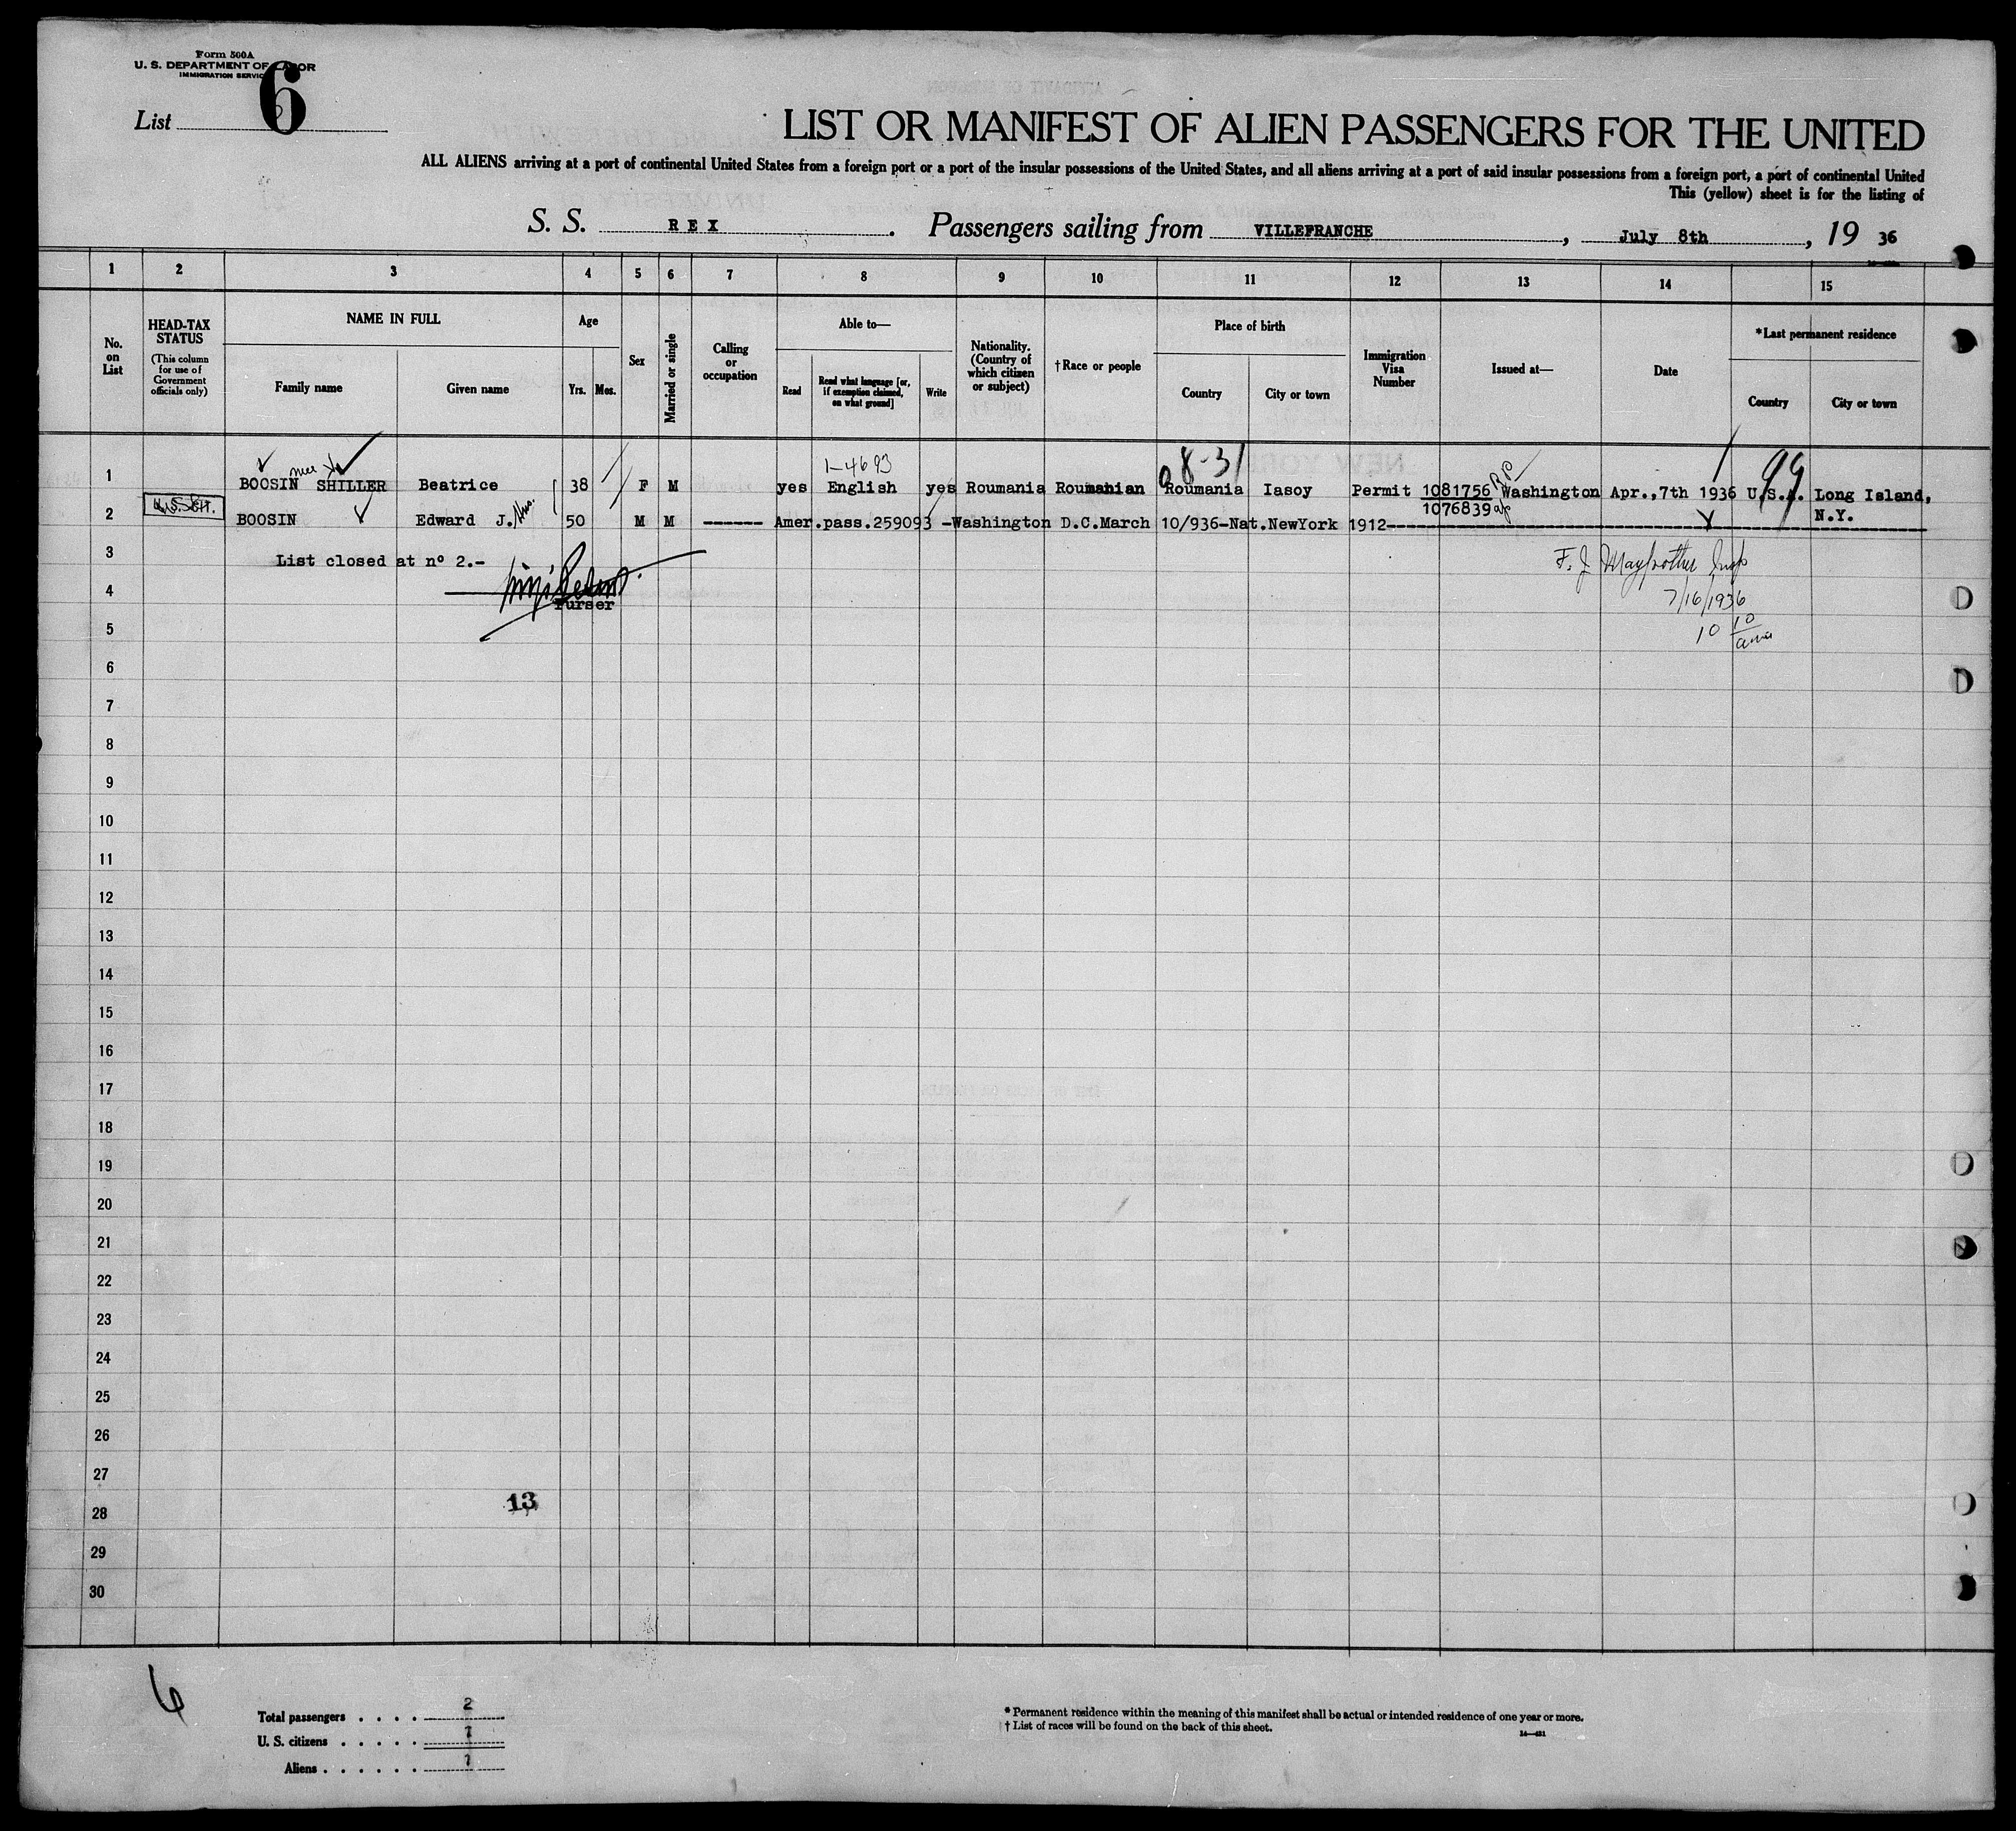 Form 500A
U. S. DEPARTMENT OF LABOR
IMMIGRATION SERVICE
List 6
LIST OR MANIFEST OF ALIEN PASSENGERS FOR THE UNITED
ALL ALIENS arriving at a port of continental United States from a foreign port or a port of the insular possessions of the United States, and all aliens arriving at a port of said insular possessions from a foreign port, a port of continental United
This (yellow) sheet is for the listing of
S. S. REX. Passengers sailing from VILLEFRANCHE, July 8th, 19 36
1 2 3 4 5 6 7 8 9 10 11 12 13 14 15
No. on List
HEAD-TAX STATUS
(This column for use of Government officials only)
NAME IN FULL
Family name
Given name
Age
Yrs. Mos.
Sex
Married or single
Calling or occupation
Able to—
Read
Read what language [or, if exemption claimed, on what ground]
Write
Nationality. (Country of which citizen or subject)
†Race or people
Place of birth
Country
City or town
Immigration Visa Number
Issued at—
Date
*Last permanent residence
Country
City or town
1-4693
1 BOOSIN nee SHILLER Beatrice 38 F M yes English yes Roumania Roumanian Roumania Iasoy Permit 1081756 Washington Apr.,7th 1936 U.S.A. Long Island,
1076839
N.Y.
2 BOOSIN Edward J. 50 M M ------ Amer.pass.259093 -Washington D.C.March 10/936-Nat.NewYork 1912-
3 List closed at nº 2.-
4
Purser
7/16/1936
10 10
5
6
7
8
9
10
11
12
13
14
15
16
17
18
19
20
21
22
23
24
25
26
27
28
13
29
30
6
Total passengers . . . . 2
U. S. citizens . . . . . 1
Aliens . . . . . . 1
* Permanent residence within the meaning of this manifest shall be actual or intended residence of one year or more.
† List of races will be found on the back of this sheet.